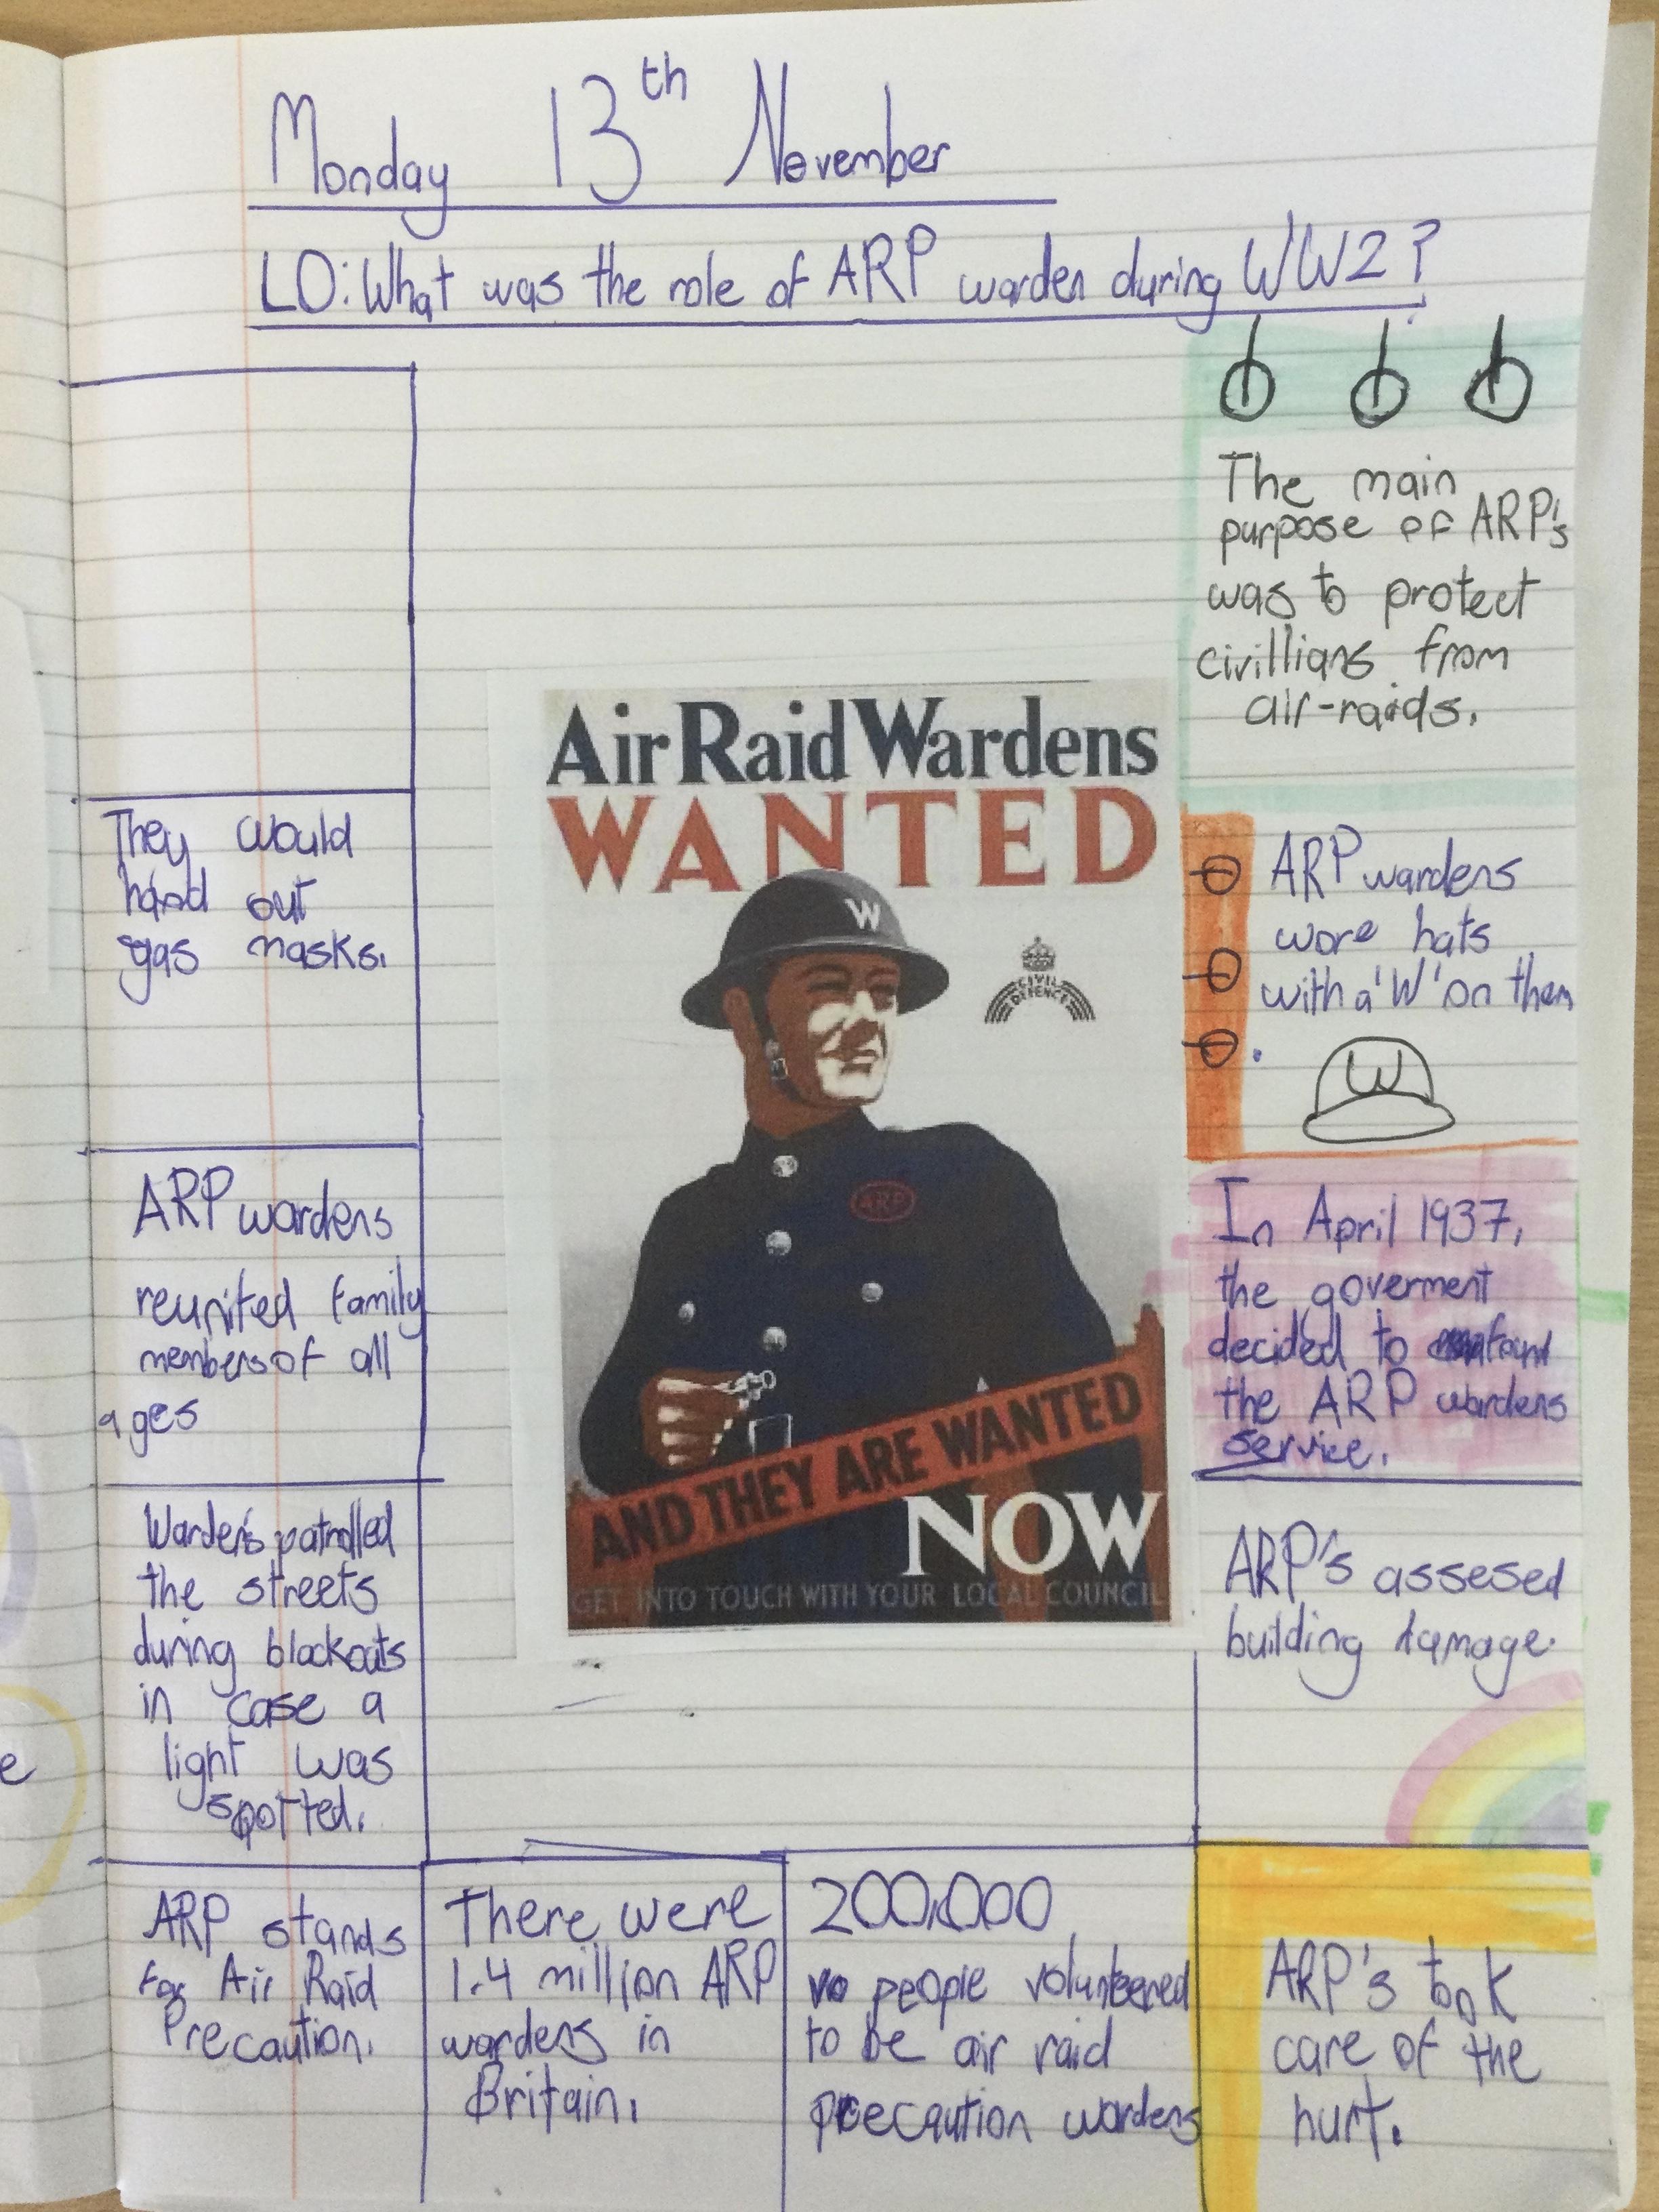 Monday 13th November
LO: What was the role of ARP warden during WW2?
They would
hand out
gas masks.
ARP wardens
reunited family
members of all
ages
Warden's patrolled
the streets
during blackouts
in case a
light was
spotted.
ARP stands
for Air Raid
Precaution.
There were
1.4 million ARP
wardens in
Britain.
200,000
people volunteered
to be air raid
precaution wardens
ARP's took
care of the
hurt.
The main
purpose of ARP's
was to protect
civillians from
air-raids.
ARP wardens
wore hats
with a 'W' on them
.
W
In April 1937,
the goverment
decided to
the ARP wardens
service.
ARP's assesed
building damage.
Air Raid Wardens
WANTED
W
CIVIL
DEFENCE
ARP
AND THEY ARE WANTED
NOW
GET INTO TOUCH WITH YOUR LOCAL COUNCIL
e